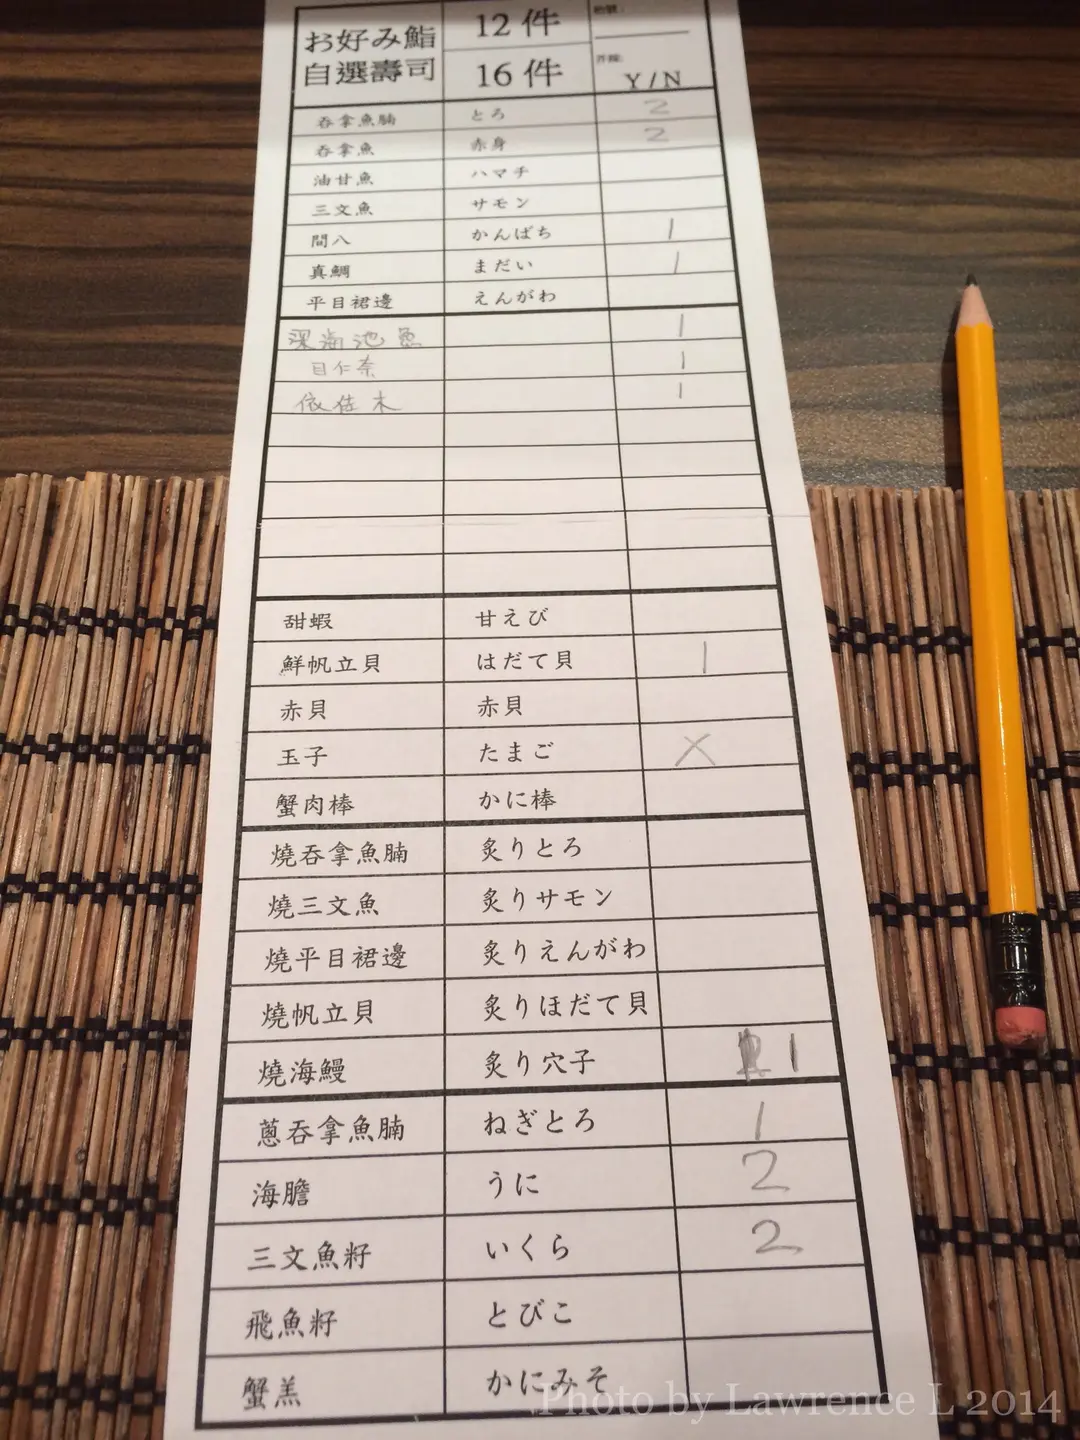 お好み鮨 12 件
自選壽司 16 件 Y / N
吞拿魚腩 とろ 2
吞拿魚 赤身 2
油甘魚 ハマチ
三文魚 サモン
間八 かんぱち 1
真鯛 まだい 1
平目裙邊 えんがわ
深海池魚 1
目仁奈 1
依佐木 1
甜蝦 甘えび
鮮帆立貝 はだて貝 1
赤貝 赤貝
玉子 たまご X
蟹肉棒 かに棒
燒吞拿魚腩 炙りとろ
燒三文魚 炙りサモン
燒平目裙邊 炙りえんがわ
燒帆立貝 炙りほだて貝
燒海鰻 炙り穴子 1
蔥吞拿魚腩 ねぎとろ 1
海膽 うに 2
三文魚籽 いくら 2
飛魚籽 とびこ
蟹羔 かにみそ
Photo by Lawrence L 2014